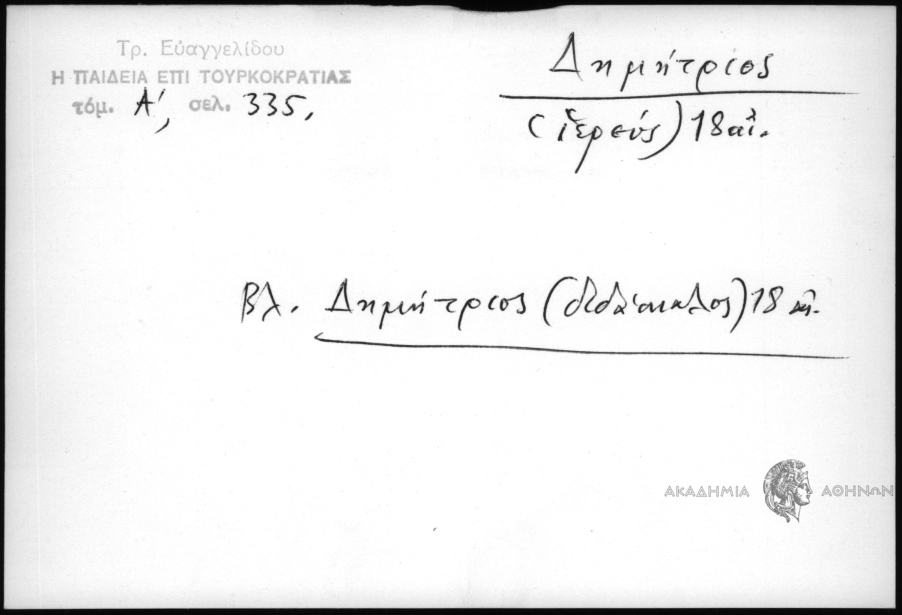 Τρ. Εὐαγγελίδου
Η ΠΑΙΔΕΙΑ ΕΠΙ ΤΟΥΡΚΟΚΡΑΤΙΑΣ
τόμ. Α', σελ. 335,
Δημήτριος
(ἱερεύς) 18 αἰ.
Βλ. Δημήτριος (διδάσκαλος) 18 αἰ.
ΑΚΑΔΗΜΙΑ ΑΘΗΝΩΝ